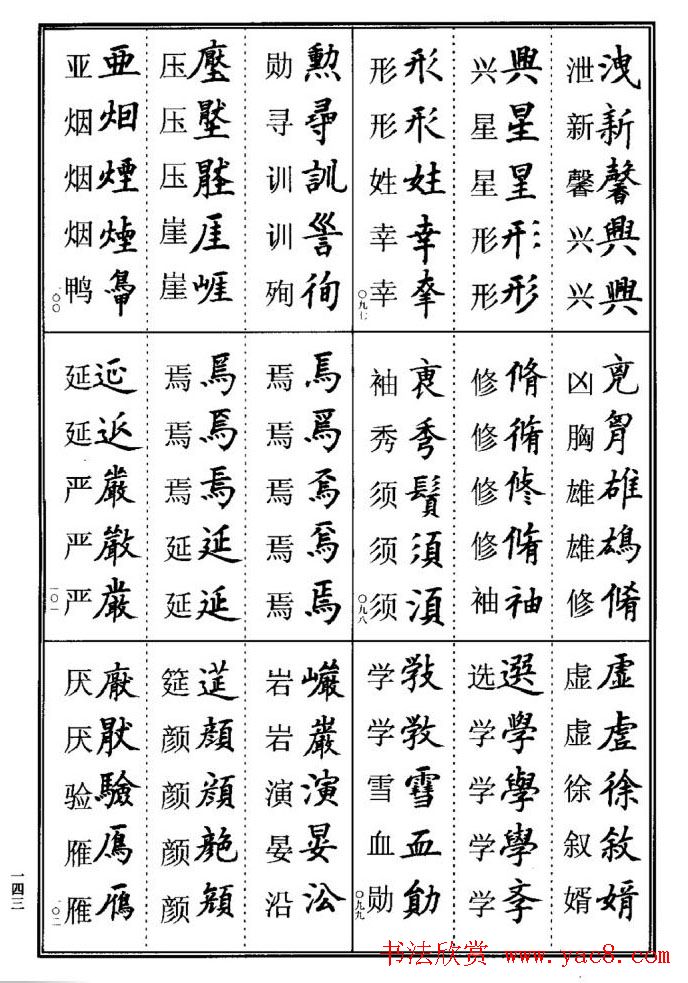 泄洩 新新 馨馨 兴興 兴興
兴興 星星 星星 形形 形形
形形 形形 姓姓 幸幸 幸㚔
〇九七
凶兇 胸胷 雄雄 雄鴆 修脩
修脩 修脩 修修 修脩 袖袖
袖褎 秀秀 须鬚 须須 须湏
〇九八
虚虚 虚虗 徐徐 叙敘 婿婿
选選 学學 学學 学學 学斈
学斅 学教 雪雪 血血 勋勛
〇九九
勋勲 寻尋 训訓 训訓 殉徇
压壓 压壓 压壓 崖厓 崖崕
亚亜 烟烟 烟煙 烟煙 鸭鴨
一〇〇
焉焉 焉焉 焉焉 焉焉 焉焉
焉焉 焉焉 焉焉 延延 延延
延延 延延 严嚴 严嚴 严嚴
一〇一
岩巖 岩巖 演演 晏晏 沿㳂
筵莚 颜顔 颜顔 颜顔 颜顔
厌厭 厌厭 验驗 雁鴈 雁鴈
一〇二
一四三
书法欣赏 www.yac8.com